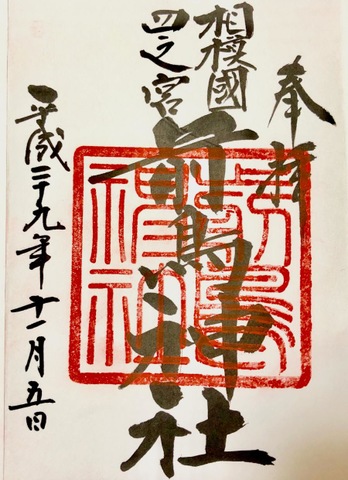 奉拝
相模國
四之宮
前鳥神社
平成二十九年十一月五日